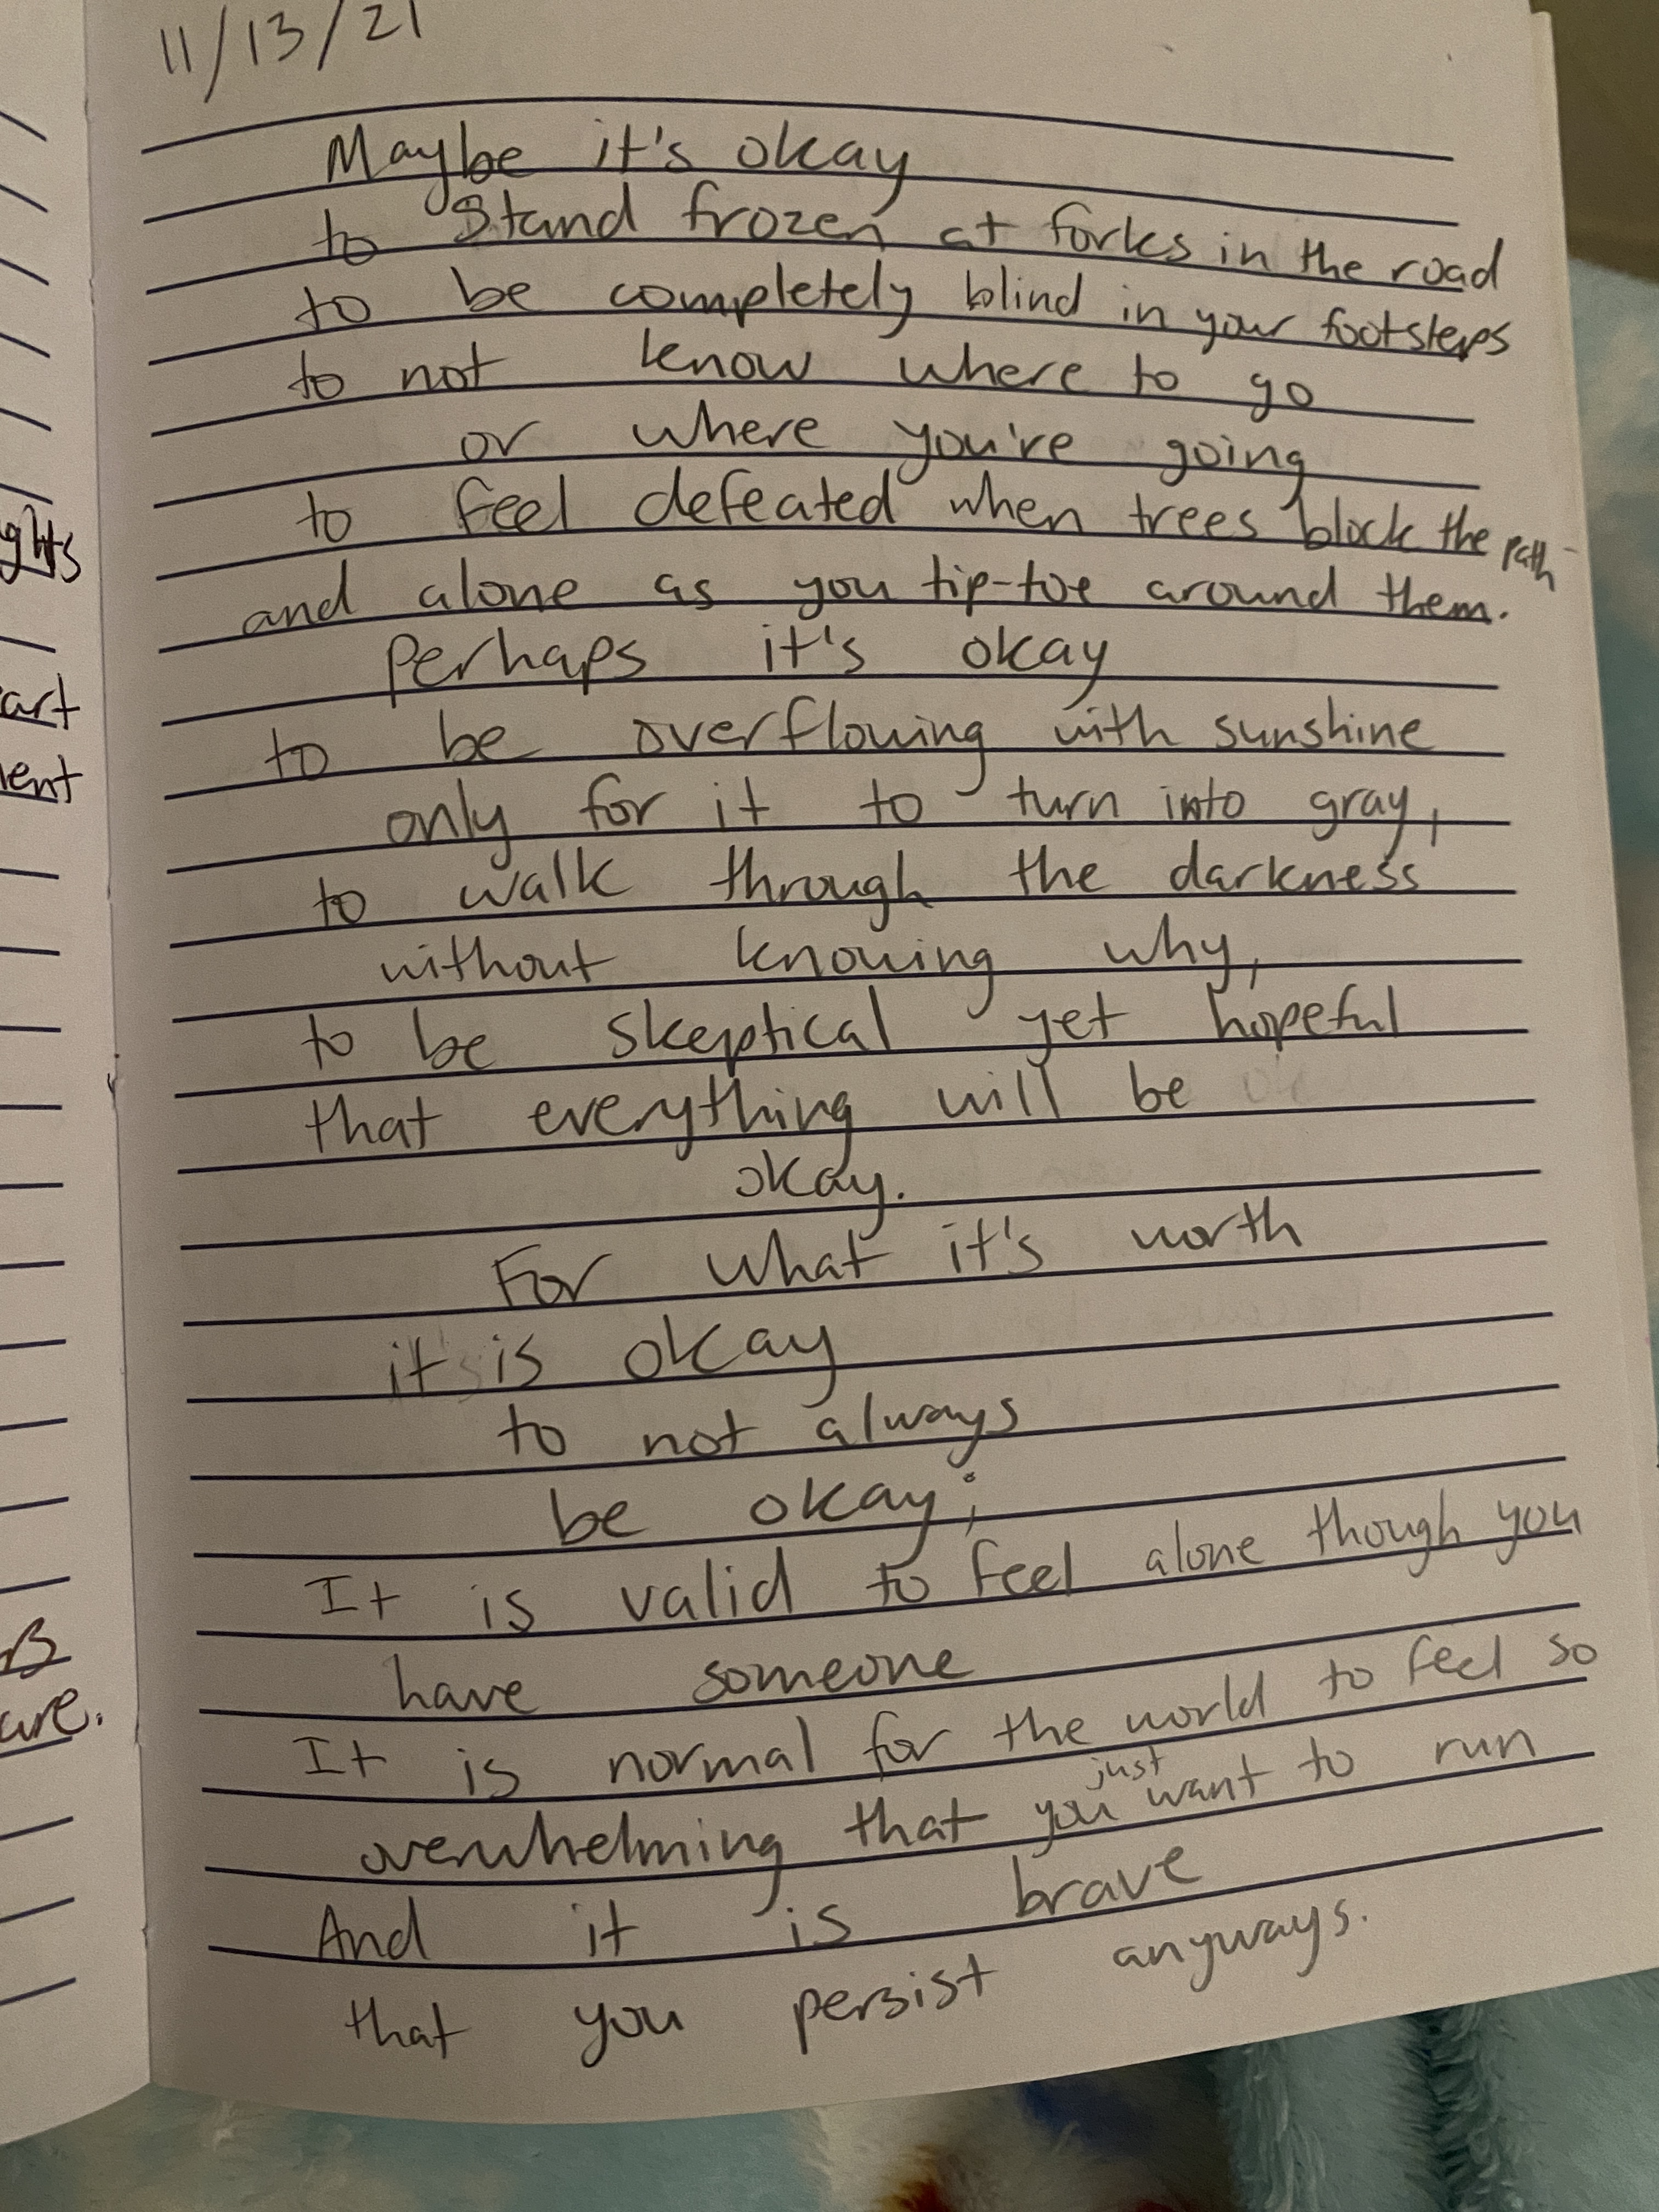 11/13/21
Maybe it's okay
to stand frozen at forks in the road
to be completely blind in your footsteps
to not know where to go
or where you're going
to feel defeated when trees block the path
and alone as you tip-toe around them.
Perhaps it's okay
to be overflowing with sunshine
only for it to turn into gray,
to walk through the darkness
without knowing why,
to be skeptical yet hopeful
that everything will be
okay.
For what it's worth
it is okay
to not always
be okay;
It is valid to feel alone though you
have someone
It is normal for the world to feel so
overwhelming that you just want to run
And it is brave
that you persist anyways.
ghts
art
ent
are.